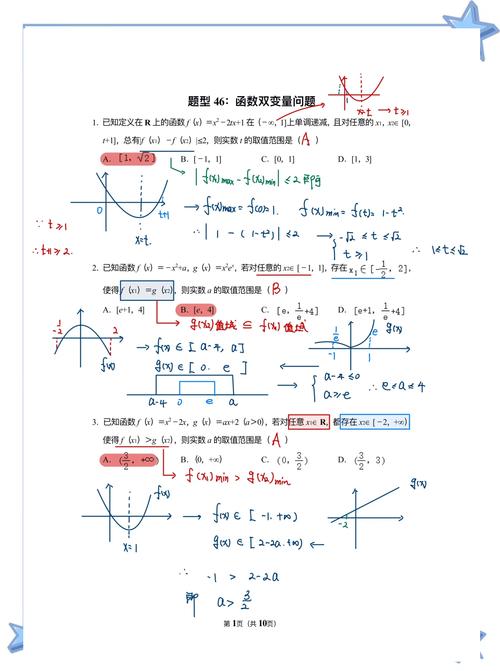 题型 46：函数双变量问题
x=t → t≥1
1. 已知定义在 R 上的函数 f (x) =x²-2tx+1 在 (-∞, 1]上单调递减, 且对任意的 x₁, x₂∈[0,
t+1], 总有|f (x₁) -f (x₂) |≤2, 则实数 t 的取值范围是 ( A )
A. [1, √2] B. [-1, 1] C. [0, 1] D. [1, 3]
|f(x)max - f(x)min| ≤ 2 即可
0 t+1
x=t.
→ f(x)max = f(0)=1. f(x)min = f(t)= 1-t².
∵ t≥1
∴ t+1≥2.
∴ |1 - (1-t²)| ≤ 2 → { -√2 ≤ t ≤ √2
t≥1
∴ 1≤t≤√2
2. 已知函数 f (x) = -x²+a, g (x) =x²eˣ, 若对任意的 x₂∈[-1, 1], 存在 x₁∈[-1/2, 2],
使得 f (x₁) =g (x₂), 则实数 a 的取值范围是 ( B )
A. [e+1, 4] B. [e, 4] C. [e, 1/e+4] D. [e+1, 1/e+4]
g(x₂)值域 ⊆ f(x₁)值域
-1/2 2 f(x)
→ f(x) ∈ [a-4, a]
g(x) ∈ [0. e]
1/e e g(x)
-1 1
a-4 0 e a
→ { a-4≤0
a≥e
∴ e≤a≤4
3. 已知函数 f (x) =x²-2x, g (x) =ax+2 (a>0), 若对任意 x₁∈R, 都存在 x₂∈[-2, +∞)
使得 f (x₁) >g (x₂), 则实数 a 的取值范围是 ( A )
A. (3/2, +∞) B. (0, +∞) C. (0, 3/2) D. (3/2, 3)
f(x₁)min > g(x₂)min
f(x)
x=1
→ f(x) ∈ [-1. +∞)
g(x) ∈ [2-2a. +∞) ←
g(x)
-2
∴ -1 > 2-2a
即 a> 3/2
第 1页（共 10页）